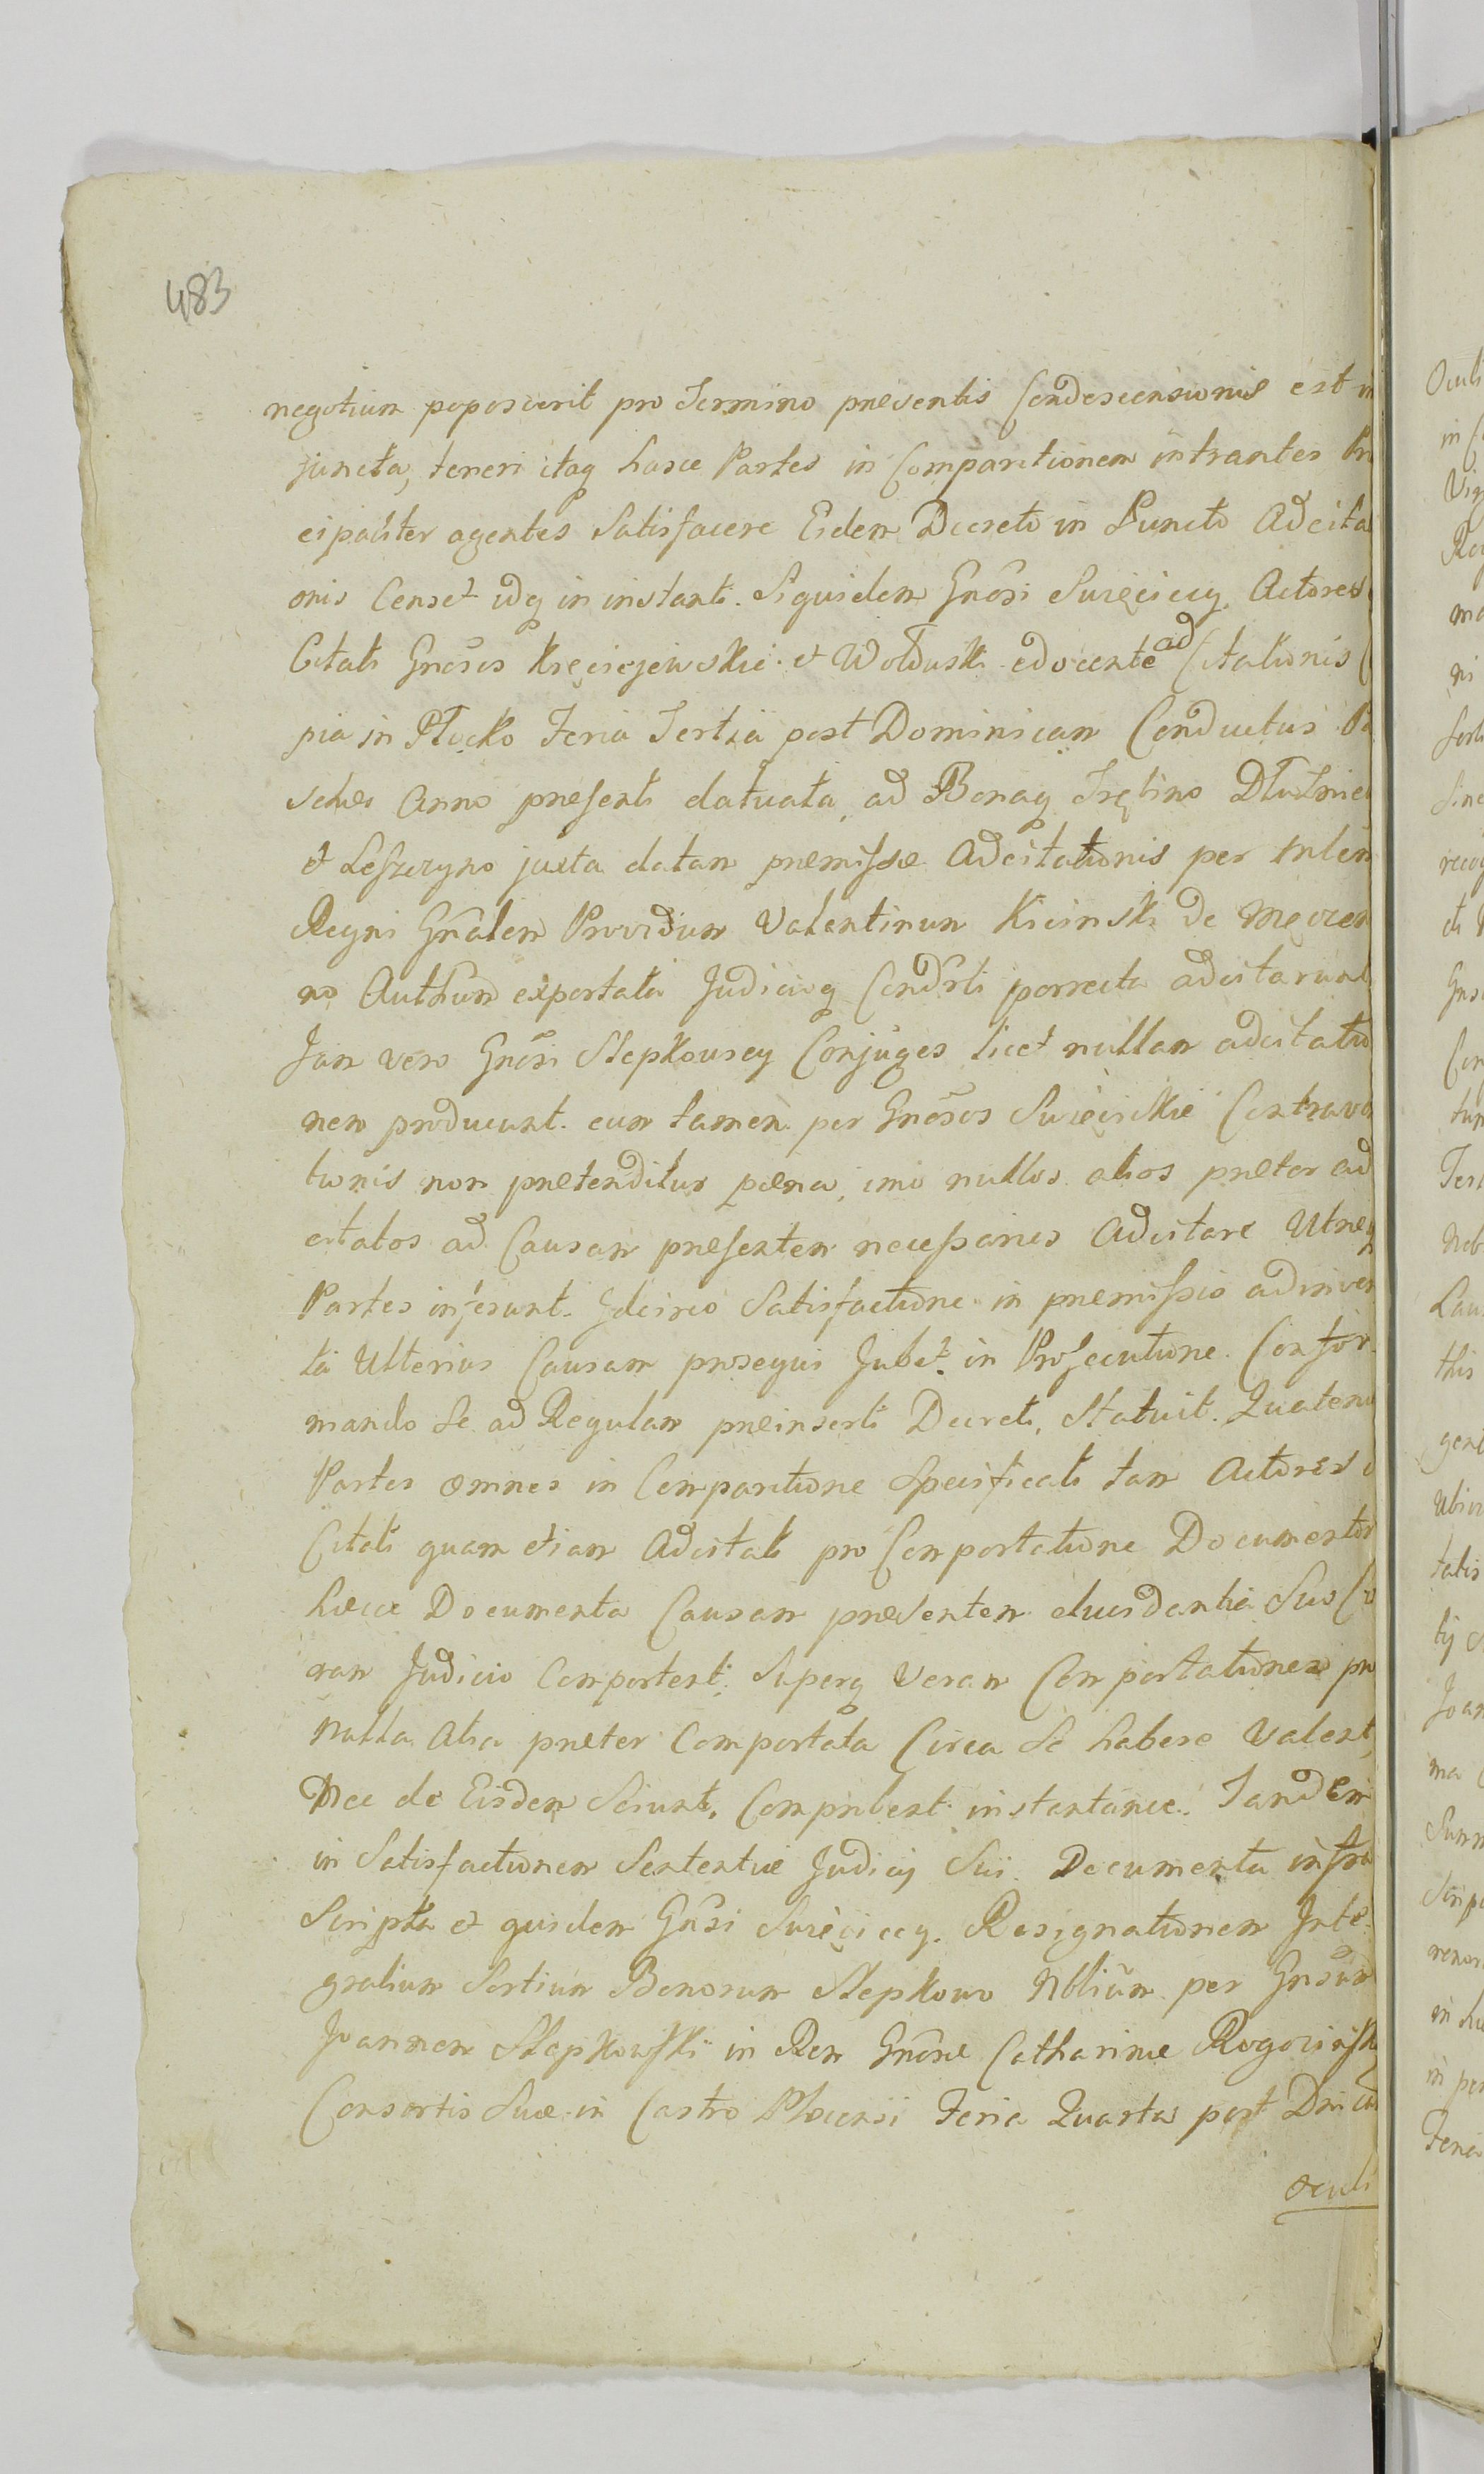 483
negotium poposcerit pro Termino præsentis Condescensionis est in
juncta, teneri itaq hasce Partes in Comparitionem intrantes Pri
cipaliter agentes Satisfacere Eidem Decreto in Puncto Adcita
onis Censet idq in instanti. Siquidem Gnősi Swięciccy Actores
Citati Gnősos Kręciejewskie et Wołduski edocente ad Citationis
pia in Płocko Feria Tertia post Dominicam Conductus Pa
schæ Anno præsenti datuata, ad Bonaq Trętino Dłutnie
et Leszczyno juxta datam præmissæ Adcitationis per
Regni Gnalem Providum Valentinum Kicinski de
no Authum exportata Judicioq Condrti porrecta adcitarunt
Jam vero Gnősi Slepkowscy Conjuges licet nullam adcitatio
nem producunt. cum tamen per Gnősos Swięcickie Contrava
tionis non prætenditur pæna, imo nullos alios præter ad
citatos ad Causam præsentem necessarios Adcitare Utræq
Partes inferunt. Idcirco Satisfactione in præmissis adinven
ta Ulterius Causam prosequi Jubet. in Prosecutione Confor
mando Se ad Regulam præinserti Decreti, Statuit. Quatenus
Partes omnes in Comparitione Specificati tam Actores
Citati quam etiam Adcitati pro Comportatione Documentor
hæcce Documenta Causam præsentem elucidantia Sua Co
ram Judicio Comportent. Superq Veram Comportationem
nulla Alia præter Comportata Circa Se habere Valent,
Nec de Eisdem Sciunt, Comprobent instantanee. Tandem
in Satisfactionem Sententiæ Judicij Sui. Documenta infra
Scripta et quidem Gnsi Swięciccy. Resignationem Inte
gralium Sortium Bonorum Slepkowo Nblium per Gnsum
Joannem Slepkowski in Rem Gnősæ Catharinæ Rogocinsk
Consortis Suæ in Castro Plocensi Feria Quarta post Dnicam
Oculi